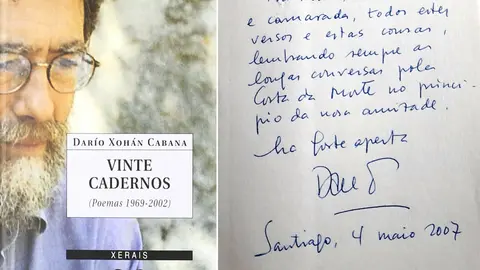 DARÍO XOHÁN CABANA
VINTE
CADERNOS
(Poemas 1969-2002)
XERAIS
e camarada, todos estes
versos e estas cousas,
lembrando sempre as
longas conversas pola
Costa da Morte no princi-
pio da nosa amizade.
forte aperta
Santiago, 4 maio 2007